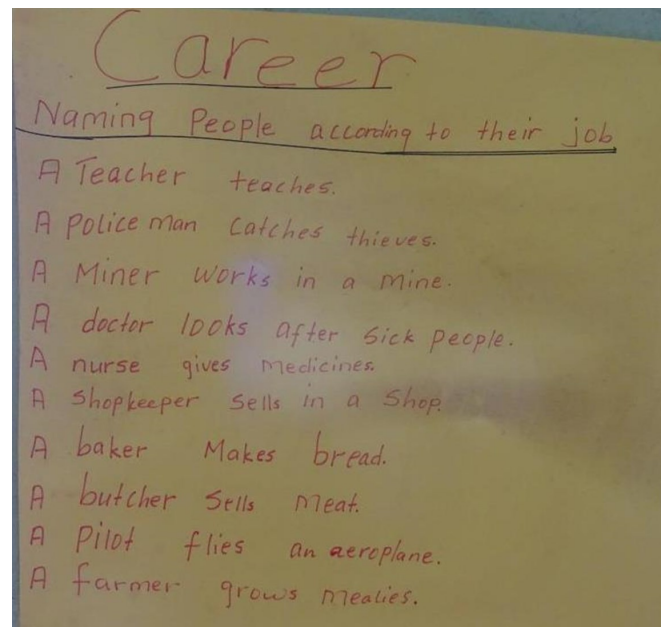 Career
Naming People according to their job
A Teacher teaches.
A police man catches thieves.
A Miner works in a mine.
A doctor looks after sick people.
A nurse gives medicines.
A shopkeeper sells in a shop.
A baker Makes bread.
A butcher sells meat.
A Pilot flies an aeroplane.
A farmer grows mealies.